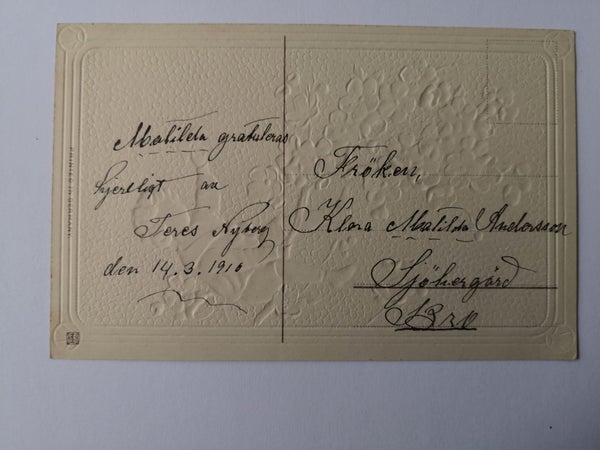 Matilda gratuleras
hjertligt av
Teres Nyberg
den 14.3.1910
Fröken,
Klara Matilda Andersson
Sjöhergård
Bro
PRINTED IN GERMANY